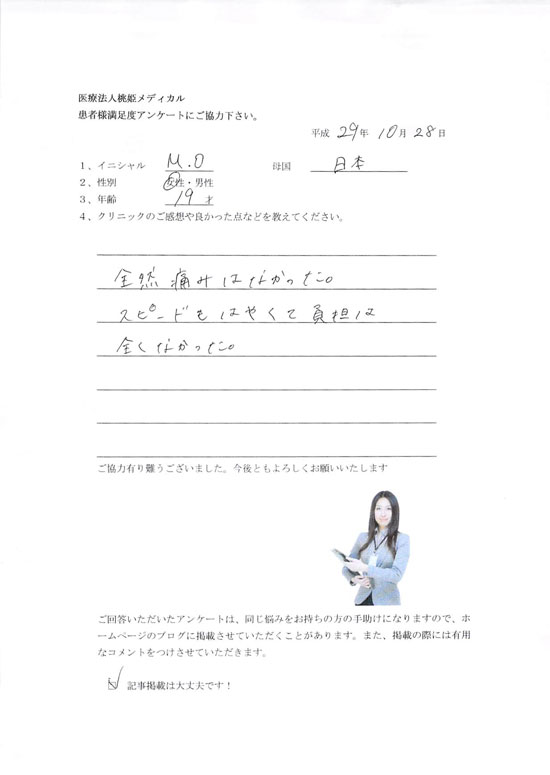 医療法人桃姫メディカル
患者様満足度アンケートにご協力下さい。
平成 29年 10月 28日
1、イニシャル M.O 母国 日本
2、性別 女性・男性
3、年齢 19 才
4、クリニックのご感想や良かった点などを教えてください。
全然痛みはなかった。
スピードもはやくて負担は
全くなかった。
ご協力有り難うございました。今後ともよろしくお願いいたします
ご回答いただいたアンケートは、同じ悩みをお持ちの方の手助けになりますので、ホ
ームページのブログに掲載させていただくことがあります。また、掲載の際には有用
なコメントをつけさせていただきます。
☑ 記事掲載は大丈夫です！